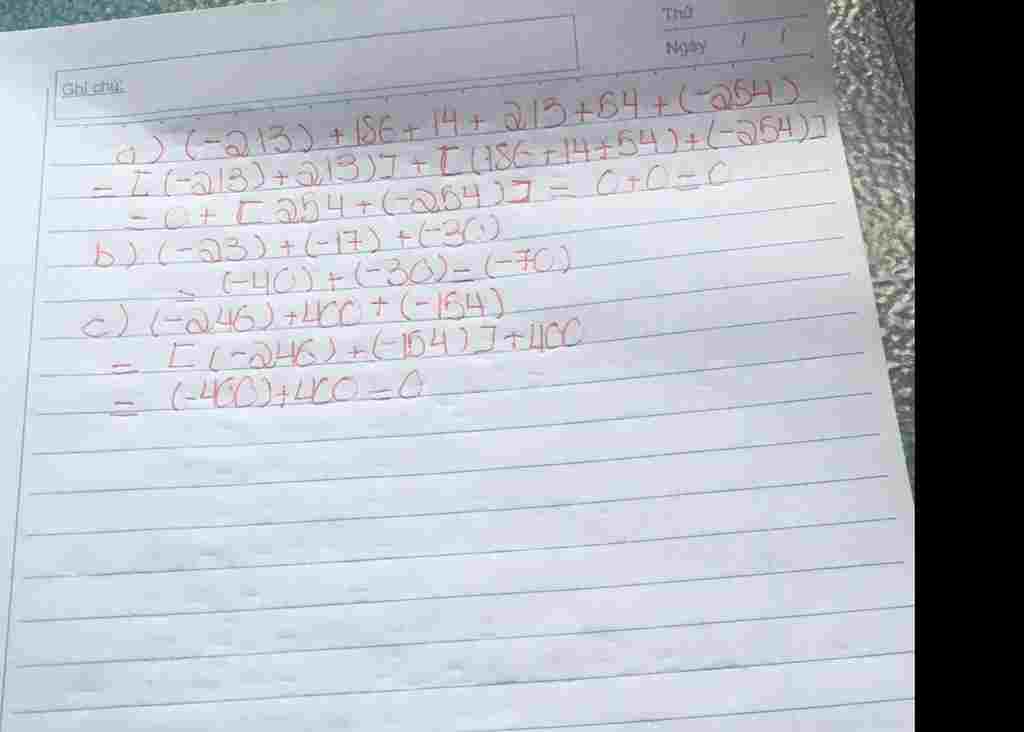 Thứ
Ngày / /
Ghi chú:
a) (-213) + 186 + 14 + 213 + 54 + (-254)
= [(-213) + 213)] + [(186 + 14 + 54) + (-254)]
= 0 + [254 + (-254)] = 0 + 0 = 0
b) (-23) + (-17) + (-30)
= (-40) + (-30) = (-70)
c) (-246) + 400 + (-154)
= [(-246) + (-154)] + 400
= (-400) + 400 = 0